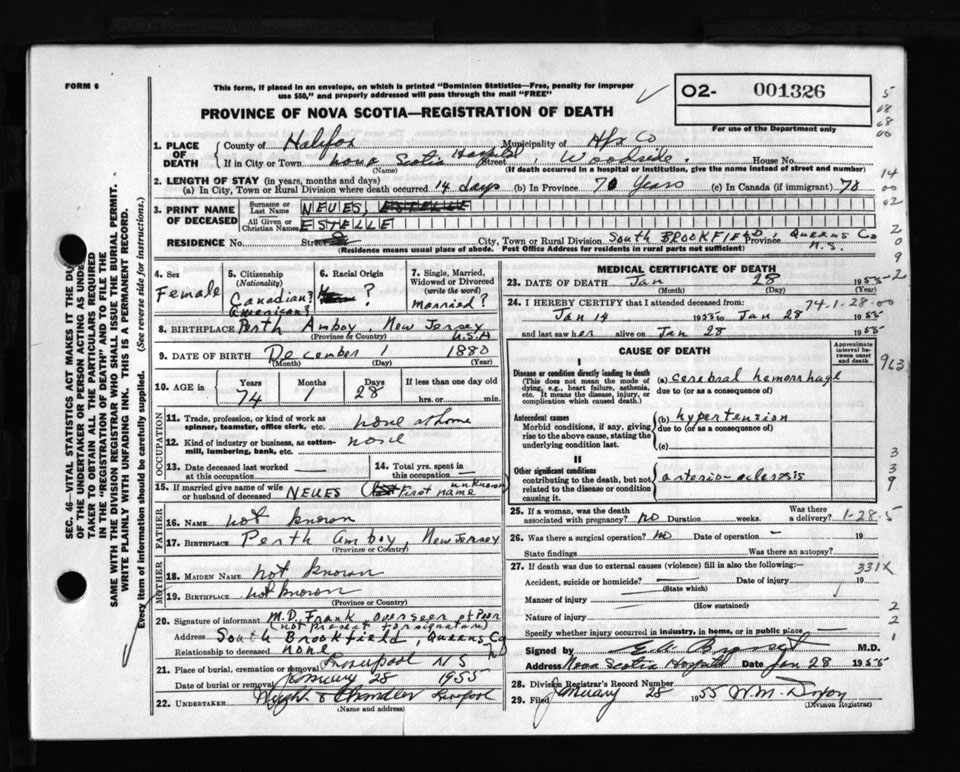 FORM 6
This form, if placed in an envelope, on which is printed "Dominion Statistics—Free, penalty for improper
use $50," and properly addressed will pass through the mail "FREE"
PROVINCE OF NOVA SCOTIA—REGISTRATION OF DEATH
O2- 001326
For use of the Department only
5
08
68
00
1. PLACE OF DEATH County of Halifax Municipality of Hfx Co
If in City or Town Nova Scotia Hospital Street, Woodside. House No.
(Name) (If death occurred in a hospital or institution, give the name instead of street and number)
2. LENGTH OF STAY (in years, months and days)
(a) In City, Town or Rural Division where death occurred 14 days (b) In Province 70 years (c) In Canada (if immigrant) 70
14
00
02
3. PRINT NAME OF DECEASED
Surname or Last Name NEVES, ESTELLE
All Given or Christian Names ESTELLE
RESIDENCE No. Street City, Town or Rural Division South BROOKFIELD, Province Queens Co N.S.
(Residence means usual place of abode. Post Office Address for residents in rural parts not sufficient)
2
0
9
4. Sex Female
5. Citizenship (Nationality) Canadian? American?
6. Racial Origin ?
7. Single, Married, Widowed or Divorced (write the word) married?
8. BIRTHPLACE Perth Amboy, New Jersey U.S.A
9. DATE OF BIRTH December 1 1880
(Month) (Day) (Year)
10. AGE in Years 74 Months 1 Days 28 If less than one day old
hrs. or min.
OCCUPATION
11. Trade, profession, or kind of work as
spinner, teamster, office clerk, etc. none at home
12. Kind of industry or business, as cotton-
mill, lumbering, bank, etc. none
13. Date deceased last worked
at this occupation
14. Total yrs. spent in
this occupation
15. If married give name of wife
or husband of deceased NEVES (First name unknown
FATHER
16. NAME not known
17. BIRTHPLACE Perth Amboy, New Jersey
(Province or Country)
MOTHER
18. MAIDEN NAME not known
19. BIRTHPLACE not known
(Province or Country)
20. Signature of informant M.D. Frank overseer of Poor
(not present for signature)
Address South Brookfield, Queens Co
Relationship to deceased none
21. Place of burial, cremation or removal Liverpool N S
Date of burial or removal January 28 1955
22. UNDERTAKER Chandler Liverpool
(Name and address)
MEDICAL CERTIFICATE OF DEATH
23. DATE OF DEATH Jan 28 1955
(Month) (Day) (Year)
-2
24. I HEREBY CERTIFY that I attended deceased from: 74-1-28-00
Jan 14 1955 to Jan 28 1955
and last saw her alive on Jan 28 1955
I
CAUSE OF DEATH
Approximate interval between onset and death
963
Disease or condition directly leading to death
(This does not mean the mode of
dying, e.g., heart failure, asthenia,
etc. It means the disease, injury, or
complication which caused death.)
(a) cerebral hemorrhage
due to (or as a consequence of)
Antecedent causes
Morbid conditions, if any, giving
rise to the above cause, stating the
underlying condition last.
(b) hypertension
due to (or as a consequence of)
(c)
II
Other significant conditions
contributing to the death, but not
related to the disease or condition
causing it.
arterio-sclerosis
3
3
9
25. If a woman, was the death Was there
associated with pregnancy? no Duration weeks. a delivery? 1-28-5
26. Was there a surgical operation? no Date of operation — 19
State findings Was there an autopsy?
27. If death was due to external causes (violence) fill in also the following:— 331X
Accident, suicide or homicide? Date of injury 19
(State which)
Manner of injury
(How sustained)
Nature of injury
Specify whether injury occurred in industry, in home, or in public place
2
2
1
Signed by M.D.
Address Nova Scotia Hospital Date Jan 28 1955
28. Division Registrar's Record Number
29. Filed January 28 1955
(Division Registrar)
SEC. 46—VITAL STATISTICS ACT MAKES IT THE DU
OF THE UNDERTAKER OR PERSON ACTING AS UNDE
TAKER TO OBTAIN ALL THE PARTICULARS REQUIRED
IN THE "REGISTRATION OF DEATH" AND TO FILE THE
SAME WITH THE DIVISION REGISTRAR WHO SHALL ISSUE THE BURIAL PERMIT.
WRITE PLAINLY WITH UNFADING INK. THIS IS A PERMANENT RECORD.
Every item of information should be carefully supplied. (See reverse side for instructions.)